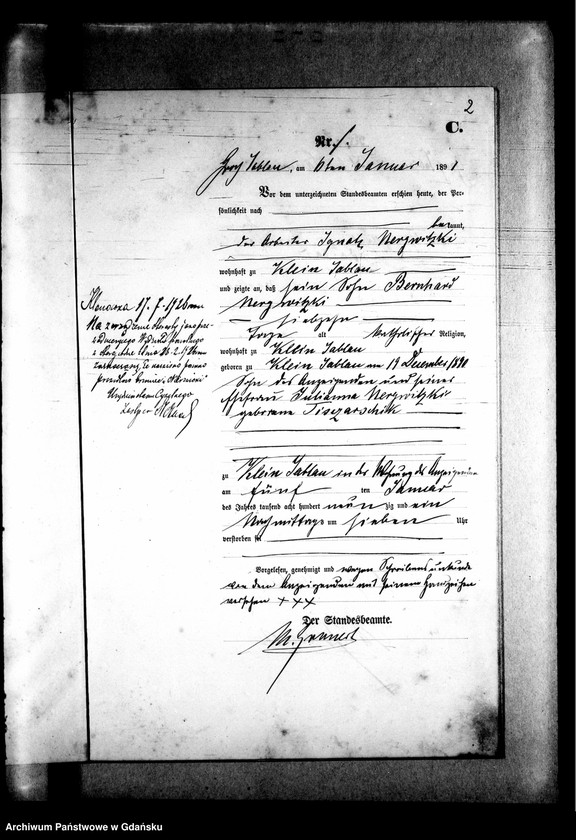 2
C.
Nr. 1.
Groß Jablau, am 6ten Januar 1891
Vor dem unterzeichneten Standesbeamten erschien heute, der Per-
sönlichkeit nach
bekannt,
der Arbeiter Ignatz Nergwitzki
wohnhaft zu Klein Jablau
und zeigte an, daß sein Sohn Bernhard
Nergwitzki
siebzehn
Tage alt katholischer Religion,
wohnhaft zu Klein Jablau
geboren zu Klein Jablau am 19 Dezember 1890
Sohn des Anzeigenden und seiner
Ehefrau Julianna Nergwitzki
geborene
zu Klein Jablau in der Wohnung des Anzeigenden
am fünf ten Januar
des Jahres tausend acht hundert neun zig und ein
Nachmittags um sieben Uhr
verstorben sei
Vorgelesen, genehmigt und wegen Schreibensunkunde
von dem Anzeigenden mit seinem Handzeichen
versehen + + +
Der Standesbeamte.
17. 7. 1926
Na zarządzenie
z dnia 26.2.1926
że nazwisko
brzmieć
Urzędnik Stanu Cywilnego
Archiwum Państwowe w Gdańsku